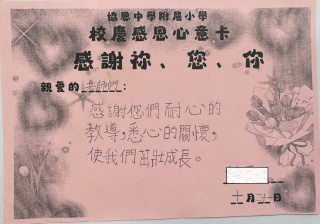 協恩中學附屬小學
校慶感恩心意卡
感謝祢、您、你
親愛的老師們：
感謝您們耐心的
教導，悉心的關懷，
使我們茁壯成長。
十月十一日